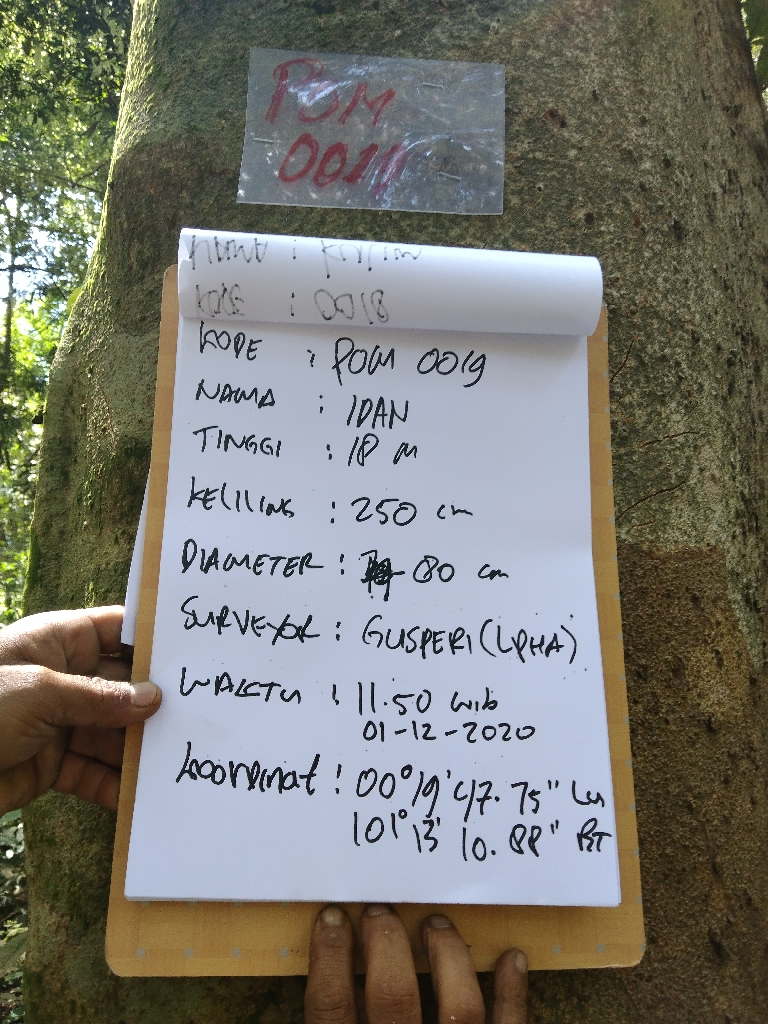 POM
KODE : 0018
KODE : POM 0019
NAMA : IDAN
TINGGI : 18 M
KELILING : 250 cm
DIAMETER : 80 cm
SURVEYOR : GUSPERI (LPHA)
WAKTU : 11.50 wib
01-12-2020
Koordinat : 00° 19' 47.75" LU
101° 13' 10.88" BT